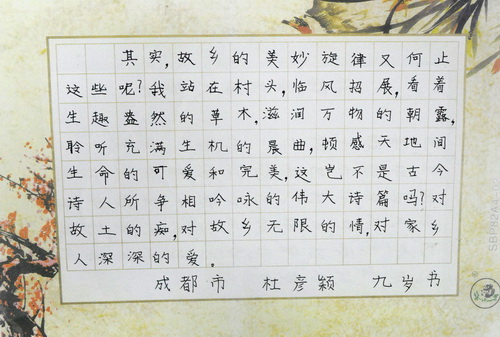 其实,故乡的美妙旋律又何止
这些呢?我站在村头,临风招展,看着
生趣盎然的草木,滋润万物的朝露,
聆听充满生机的晨曲,顿感天地间
生命的可爱和完美,这岂不是古今
诗人所争相吟咏的伟大诗篇吗?对
故土的痴,对故乡无限的情,对家乡
人深深的爱。
成都市 杜彦颖 九岁书